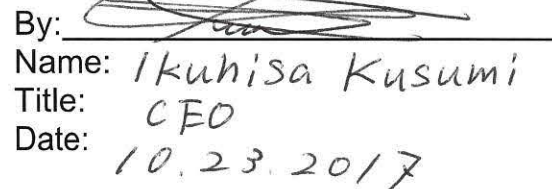 By:
Name: Ikuhisa Kusumi
Title: CEO
Date: 10.23.2017